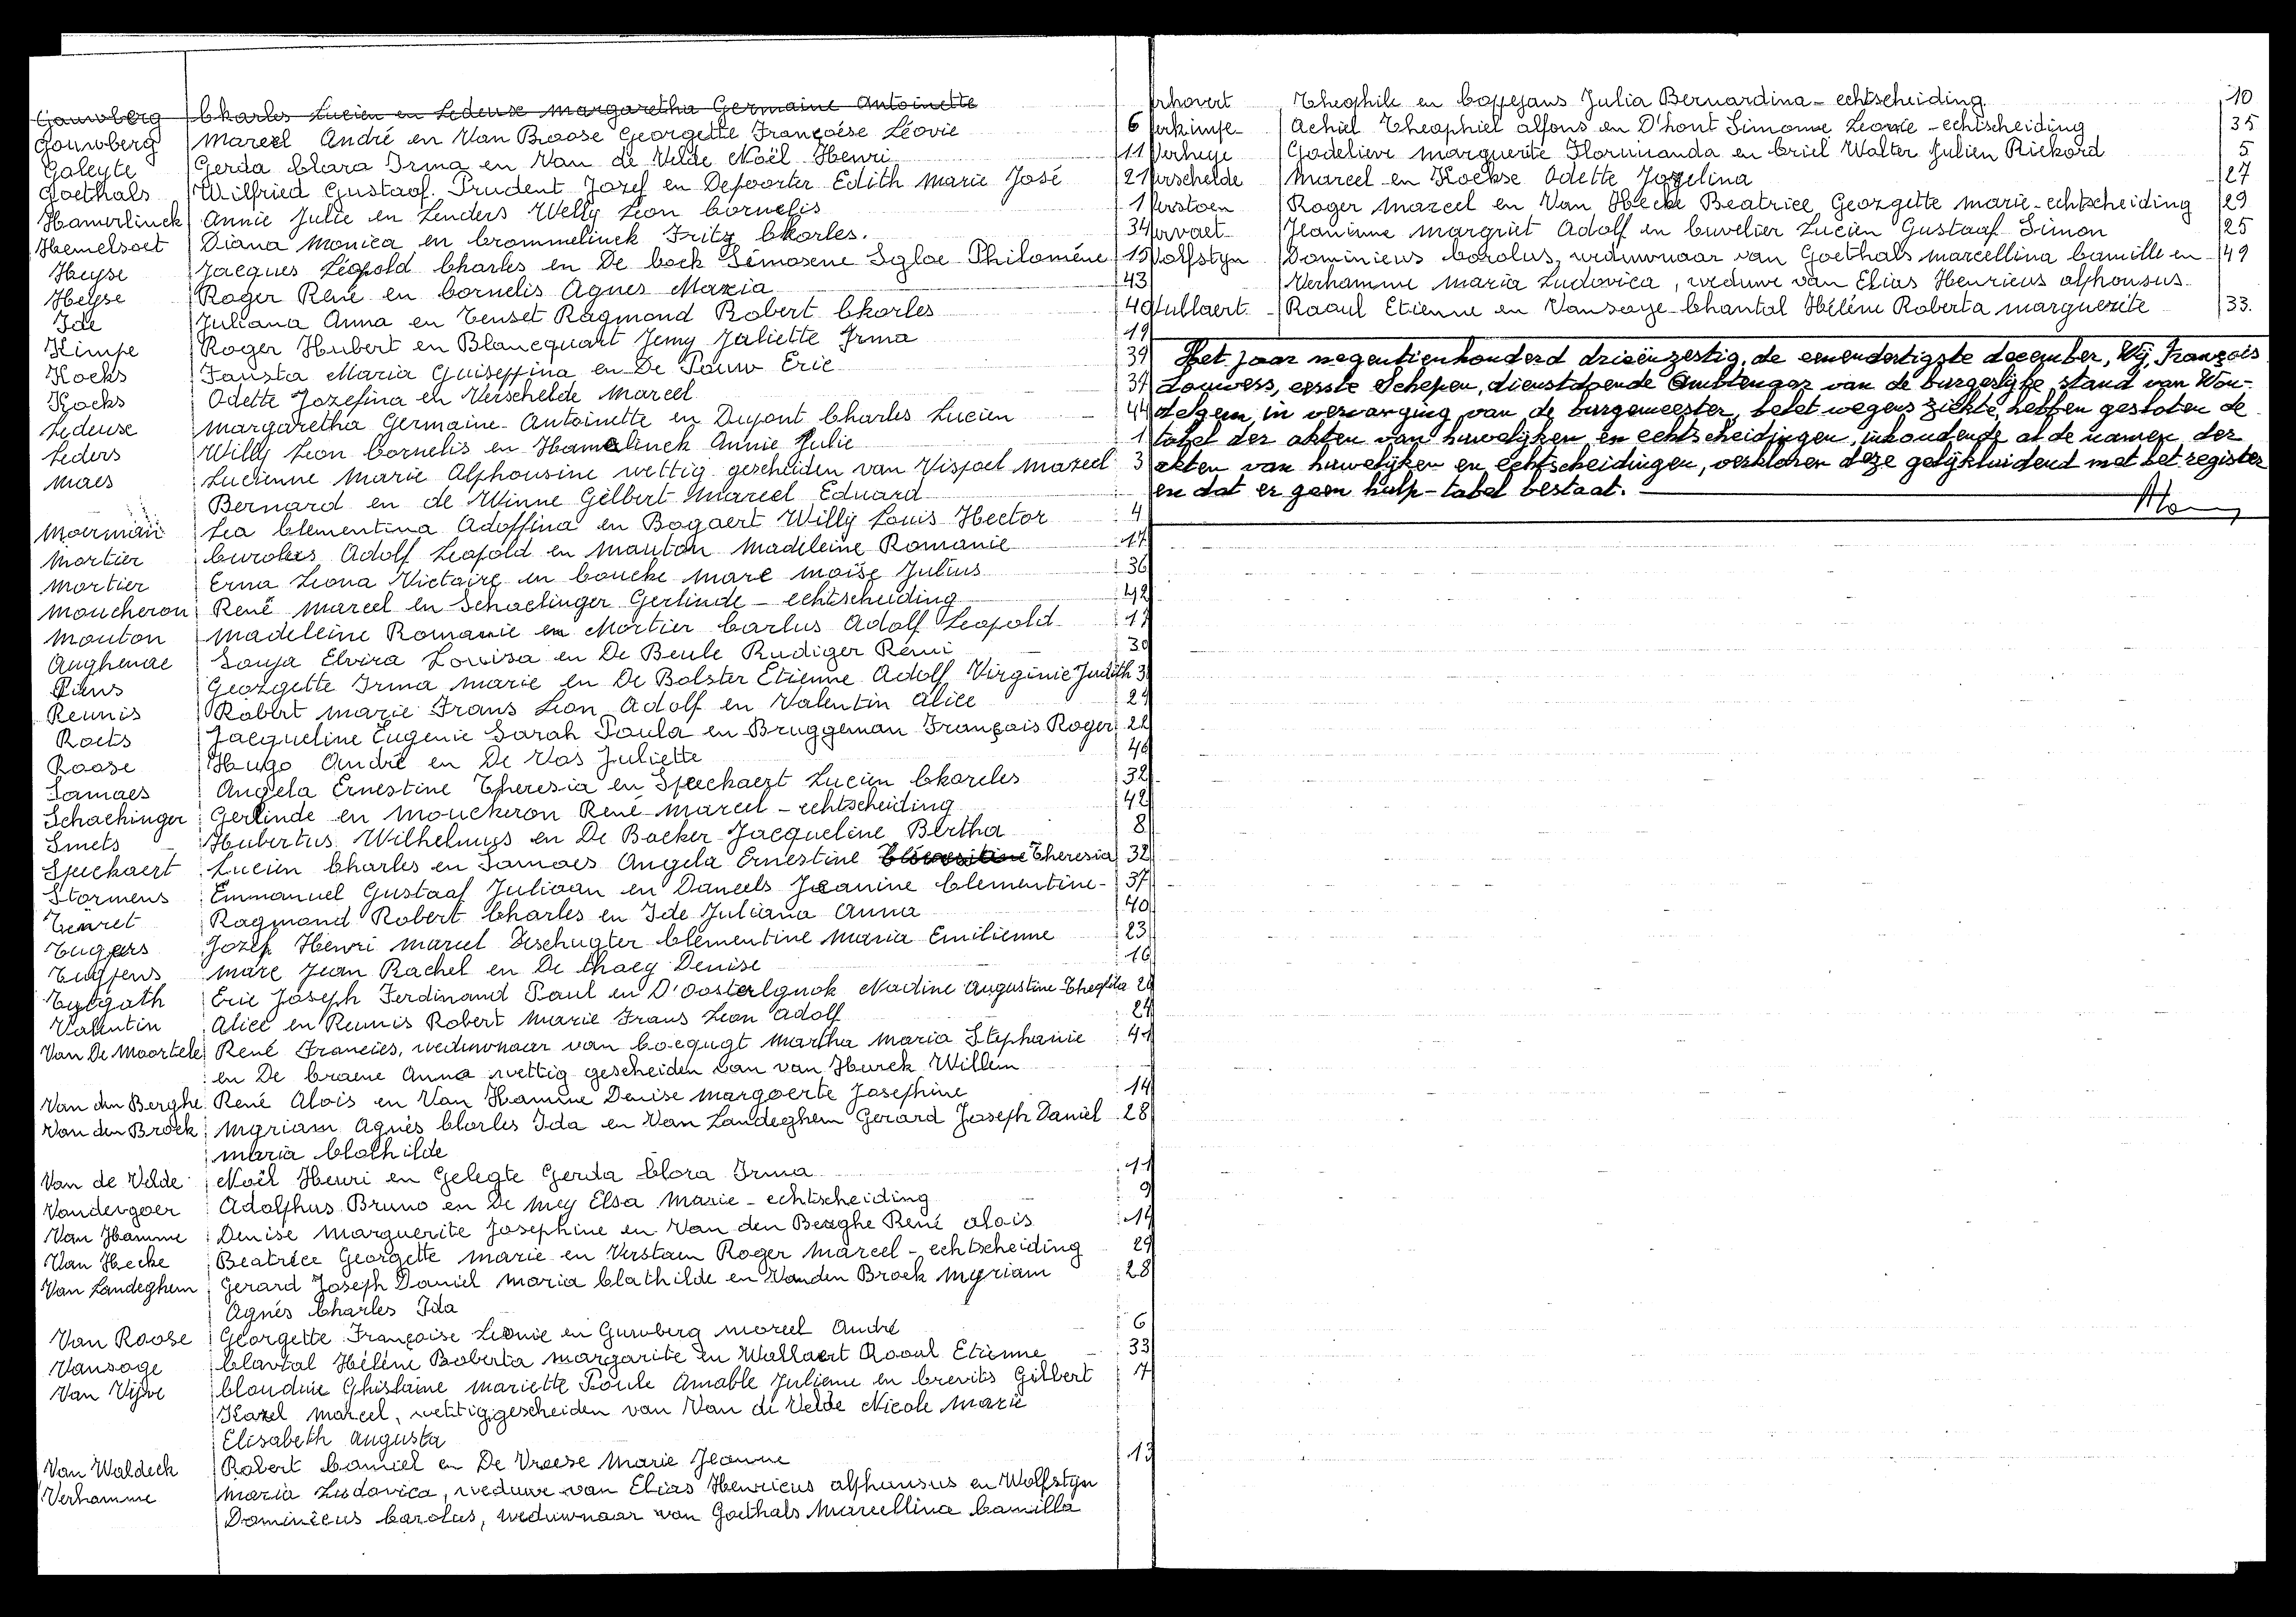 Gouwberg Charles Lucien en Ledeuse Margaretha Germaine Antoinette
Gouwberg Marcel André en Van Broose Georgette Françoise Léovie 6
Galeyte Gerda Clara Irma en Van de Velde Noël Henri 11
Goethals Wilfried Gustaaf Prudent Jozef en Depoorter Edith Marie José 21
Hamerlinck Annie Julie en Lenders Welly Leon Cornelis 1
Hemelsoet Diana Monica en Crommelinck Fritz Charles. 34
Heyse Jacques Léopold Charles en De Cock Simosene Sgloe Philomène 15
Heyse Roger René en Cornelis Agnes Maria 43
Ide Juliana Anna en Tenset Raymond Robert Charles 40
Kimpe Roger Hubert en Blancquart Jemy Juliette Irma 19
Kocks Fausta Maria Guiseppina en De Pauw Eric 39
Kocks Odette Jozefina en Verschelde Marcel 37
Ledeuse Margaretha Germaine Antoinette en Dupont Charles Lucien 44
Leders Willy Leon Cornelis en Hamelinck Annie Julie 1
Maes Lucienne Marie Alphonsine wettig gescheiden van Vispoel Marcel 3
Bernard en de Winne Gilbert Marcel Eduard
Moerman Lea Clementina Adolfina en Bogaert Willy Louis Hector 4
Mortier Carolus Adolf Leopold en Mauton Madeleine Romanie 17
Mortier Erna Leona Victoire en Coucke Marc Moïse Julius 36
Moucheron René Marcel en Schaelinger Gerlinde - echtscheiding 42
Mouton Madeleine Romanie en Mortier Carlus Adolf Leopold 17
Aughenae Sonja Elvira Louisa en De Beule Rudiger Remi 30
Piens Georgette Irma Marie en De Bolster Etienne Adolf Virginie Judith 3
Reunis Robert Marie Frans Leon Adolf en Valentin Alice 24
Roets Jacqueline Eugenie Sarah Paula en Bruggeman François Roger 22
Roose Hugo André en De Vos Juliette 46
Samaes Angela Ernestine Theresia en Speckaert Lucien Charles 32
Schachinger Gerlinde en Mouckeron René Marcel - echtscheiding 42
Smets Hubertus Wilhelmus en De Backer Jacqueline Bertha 8
Speckaert Lucien Charles en Samaes Angela Ernestine Theresia 32
Stormens Emmanuel Gustaaf Juliaan en Daneels Jeanine Clementine 37
Tenret Raymond Robert Charles en Ide Juliana Anna 40
Tuypers Jozef Henri Marcel Deschuyter Clementine Maria Emilienne 23
Tuypens Marc Jean Rachel en De Chaey Denise 16
Tytgath Eric Joseph Ferdinand Paul en D'Oosterlynck Nadine Augustine Theofila 26
Valentin Alice en Reunis Robert Marie Frans Leon Adolf 24
Van De Moortele René Francies, weduwnaar van Cocquyt Martha Maria Stephanie 41
en De Craene Anna wettig gescheiden van van Hurck Willem
Van den Berghe René Alois en Van Hamme Denise Margoerte Josephine 14
Van den Broek Myriam Agnès Charles Ida en Van Landeghem Gerard Joseph Daniël 28
Maria Clothilde
Van de Velde Noël Henri en Gelegte Gerda Clara Irma 11
Vandergoer Adolphus Bruno en De Mey Elsa Marie - echtscheiding 9
Van Hamme Denise Marguerite Josephine en Van den Berghe René Alois 14
Van Hecke Beatrice Georgette Marie en Verstaen Roger Marcel - echtscheiding 29
Van Landeghem Gerard Joseph Daniël Maria Clathilde en Vanden Broek Myriam 28
Agnès Charles Ida
Van Roose Georgette Françoise Leonie en Guwberg Marcel André 6
Vansoge Chantal Hélène Roberta Margarite en Wullaert Raoul Etienne 33
Van Vijve Claudine Ghislaine Mariette Paule Amable Julienne en Crevits Gilbert 7
Karel Marcel, wettig gescheiden van Van de Velde Nicole Marie
Elisabeth Augusta
Van Waldeck Robert Camiel en De Vreese Marie Jeanne 13
Verhamme Maria Ludovica, weduwe van Elias Henricus Alphonsus en Wolfstyn
Dominicus Carolus, weduwnaar van Goethals Marcellina Camilla
erhovert Theophile en Coppejans Julia Bernardina - echtscheiding 10
erkimpe Achiel Theophiel Alfons en D'hont Simonne Leonie - echtscheiding 35
Verheye Godelieve Marguerite Florimanda en Criel Walter Julien Rickord 5
erschelde Marcel en Kockse Odette Jozelina 27
erstoen Roger Marcel en Van Hecke Beatrice Georgette Marie - echtscheiding 29
ervaet Jeaninne Margriet Adolf en Cuvelier Lucien Gustaaf Simon 25
Wolfstyn Dominicus Carolus, weduwnaar van Goethals Marcellina Camille en 49
Verhamme Maria Ludovica, weduwe van Elias Henricus Alphonsus
Wullaert Raoul Etienne en Vansoye Chantal Hélène Roberta Marguerite 33.
Het jaar negentienhonderd drieënzestig, de eenendertigste december, Wij, François
Louwess, eerste Schepen, dienstdoende Ambtenaar van de burgerlijke stand van Won-
delgem, in vervanging van de burgemeester, belet wegens ziekte, hebben gesloten de
tabel der akten van huwelijken en echtscheidingen, inhoudende al de namen der
akten van huwelijken en echtscheidingen, verklaren deze gelijkluidend met het register
en dat er geen hulp-tabel bestaat.